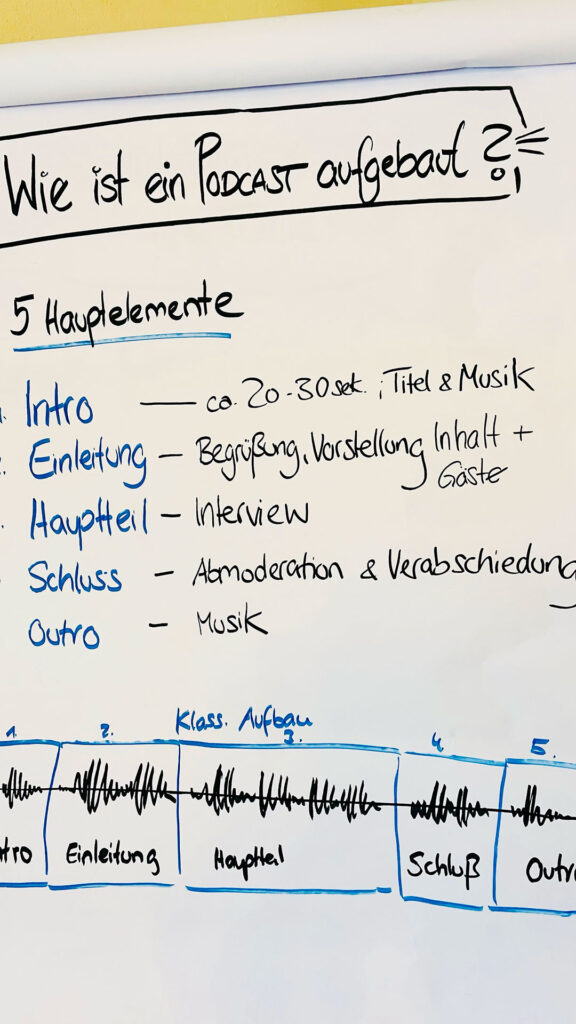 Wie ist ein PODCAST aufgebaut?!
5 Hauptelemente
Intro — ca. 20-30 sek. ; Titel & Musik
Einleitung — Begrüßung, Vorstellung Inhalt +
Gäste
Hauptteil — Interview
Schluss — Abmoderation & Verabschiedung
Outro — Musik
Klass. Aufbau
1. 2. 3. 4. 5.
tro Einleitung Hauptteil Schluß Outr